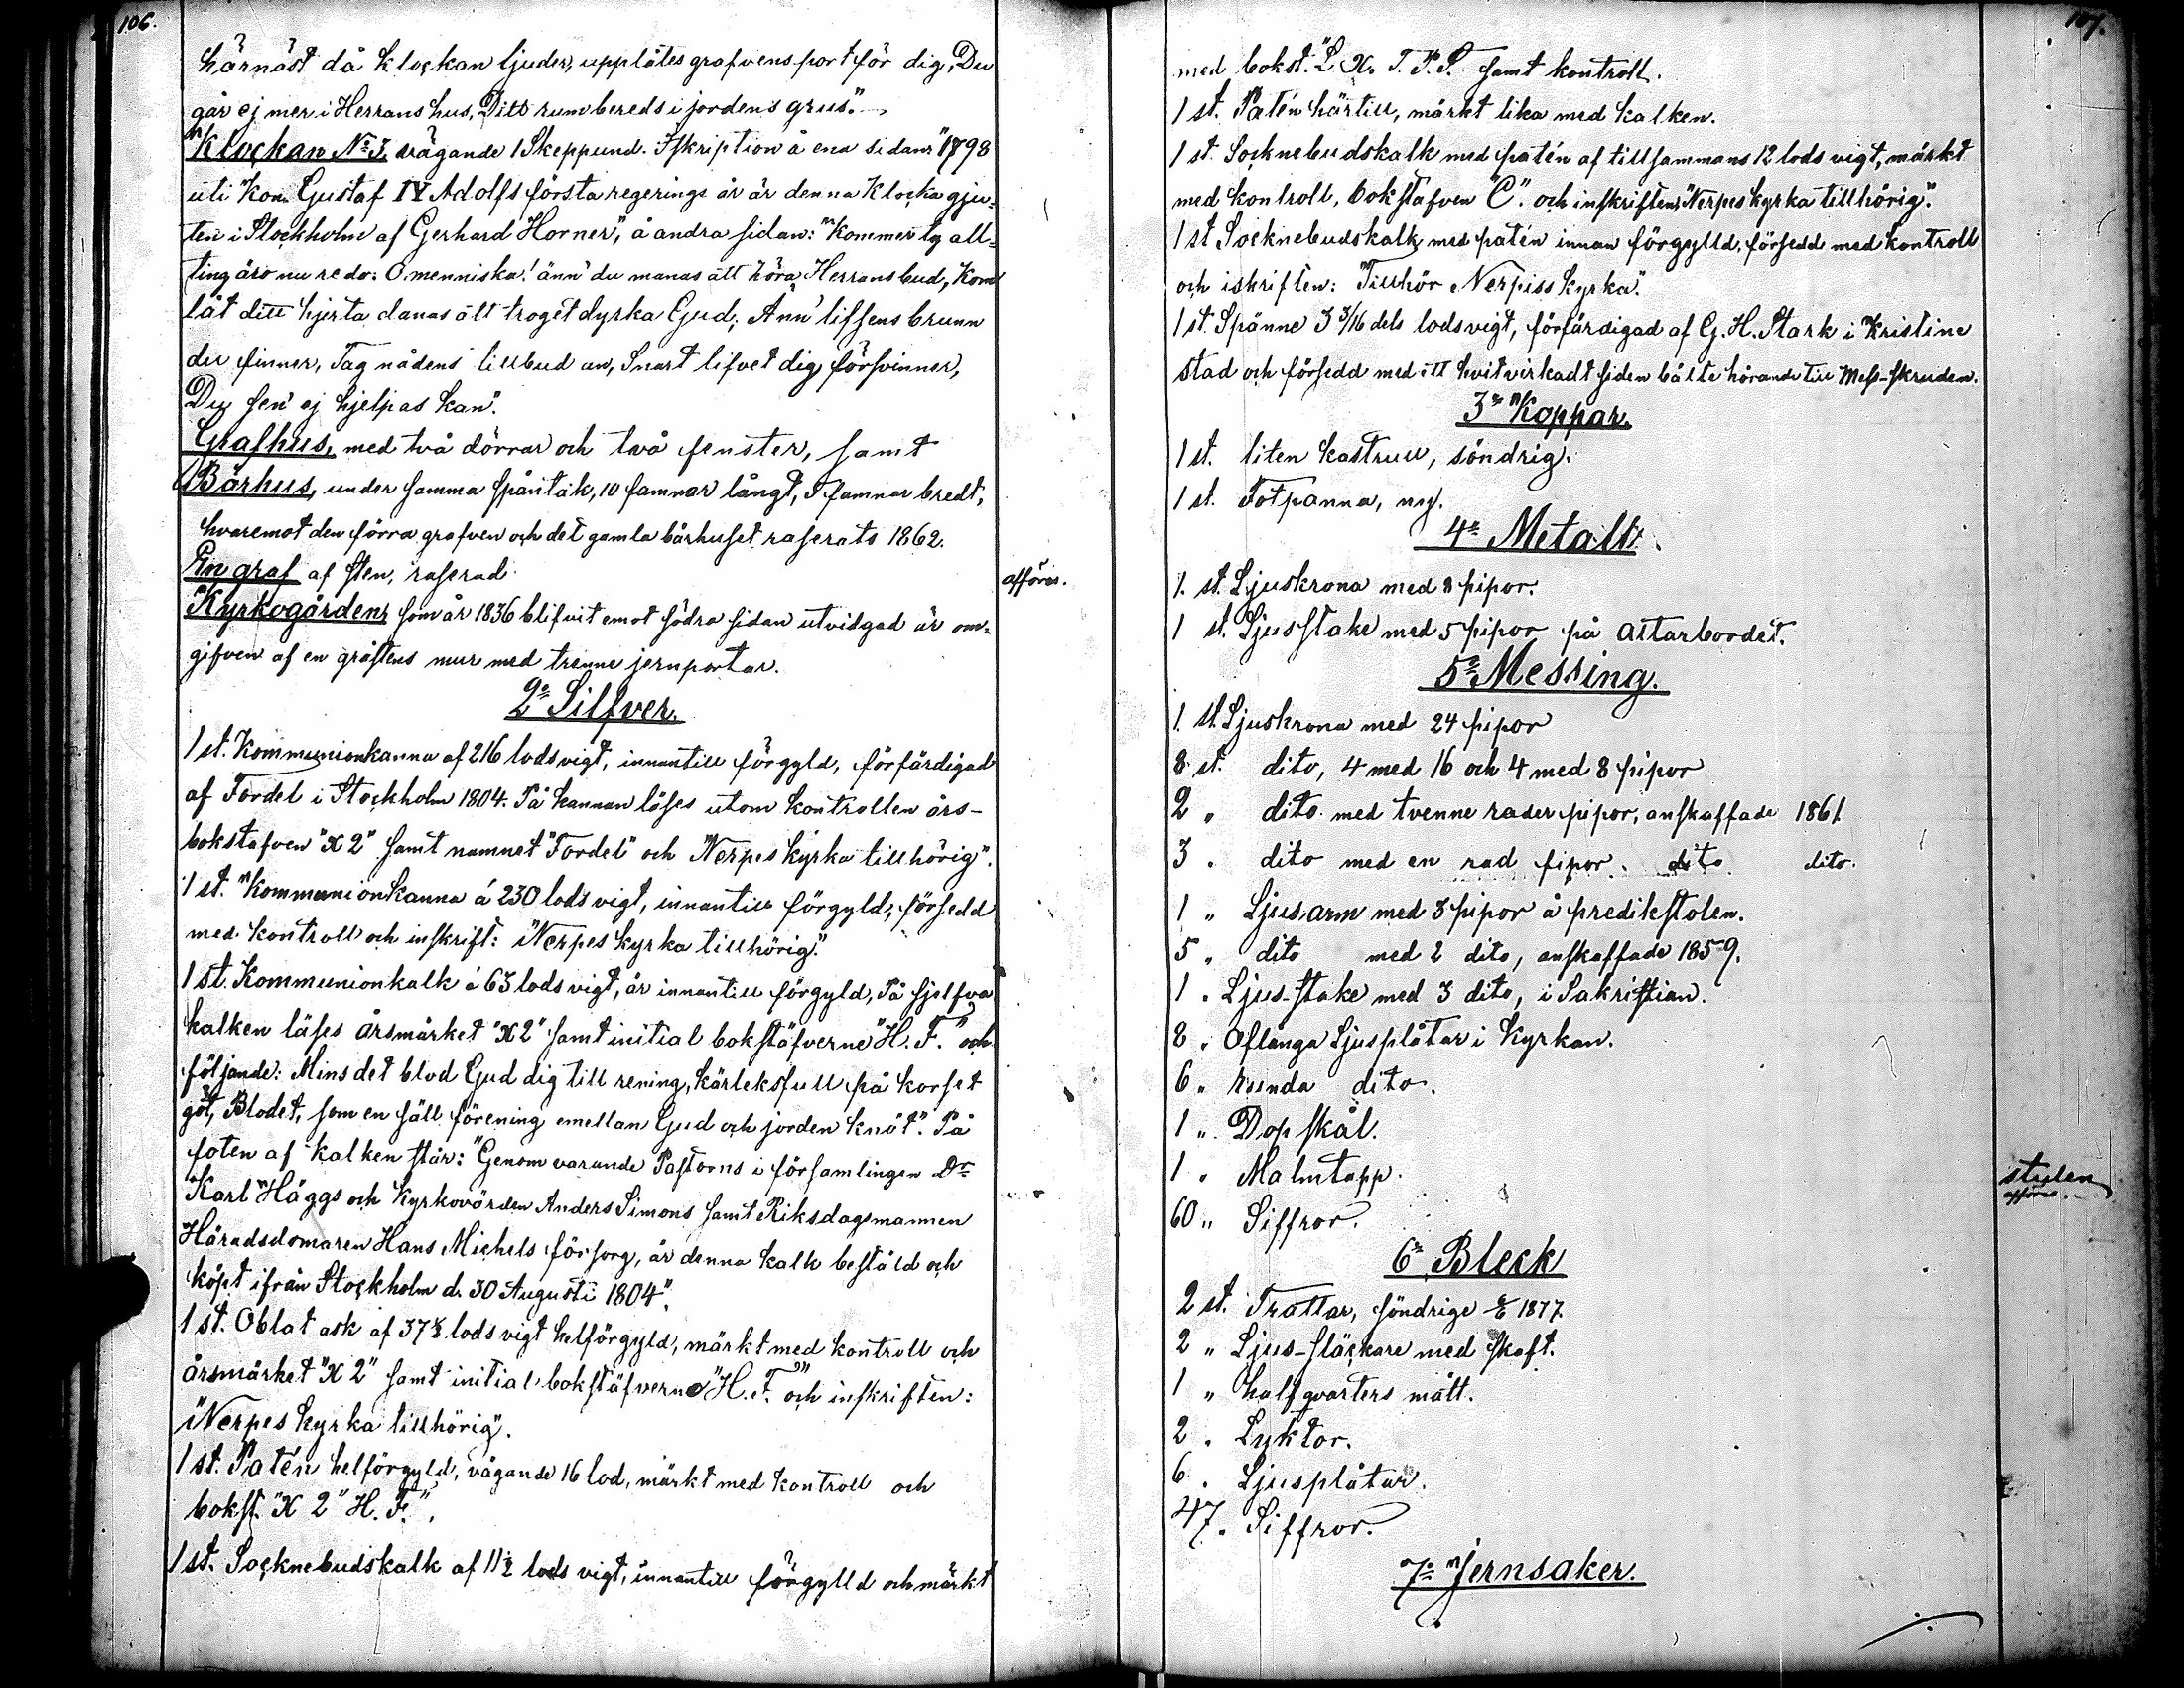 106.
härnäst då klockan ljuder, upplåtes grafvens port för dig, Du
går ej mer i Herrans hus, Ditt rum bereds i jordens grus".
Klockan No 3, vägande 1 Skeppund. Iskription å ena sidan: "1798
uti Kon. Gustaf IV Adolfs första regerings år är denna klocka gju-
ten i Stockholm af Gerhard Horner", å andra sidan: "Kommer ty all-
ting äro nu redo: O menniska! änn' du manas att höra Herrans bud, Kom
låt ditt hjerta danas att troget dyrka Gud; Änn' lifsens brunn
du finner, Tag nådens tillbud an, Snart lifvet dig försvinner,
Du sen' ej hjelpas kan".
Grafhus, med två dörrar och två fenster, samt
Bårhus, under samma spåntak, 10 famnar långt, 5 famnar bredt,
hvaremot den förra grafven och det gamla bårhuset raserats 1862.
En graf af sten, raserad
afföres.
Kyrkogården, som år 1836 blifvit emot södra sidan utvidgad är om-
gifven af en gråstens mur med trenne jernportar.
2o Silfver.
1 st. Kommunionkanna af 216 lods vigt, innantill förgyld, förfärdigad
af Fordel i Stockholm 1804. På kannan läses utom kontrollen års-
bokstafven "X 2" samt namnet "Fordel" och "Nerpes kyrka tillhörig".
1 st. Kommunionkanna á 230 lods vigt, innantill förgyld, försedd
med kontroll och inskrift: "Nerpes kyrka tillhörig".
1 st. Kommunionkalk á 63 lods vigt, är innantill förgyld, På sjelfva
kalken läses årsmärket "X 2" samt initial bokstäfverne "H. F." och
följande: Mins det blod Gud dig till rening, kärleksfull på korset
göt, Blodet, som en säll förening emellan Gud och jorden knöt". På
foten af kalken står: "Genom varande Pastorns i församlingen Dr
Karl Häggs och Kyrkovärden Anders Simons samt Riksdagsmannen
Häradsdomaren Hans Michels försorg, är denna kalk bestäld och
köpt ifrån Stockholm d. 30 Augusti 1804".
1 st. Oblat ask af 37 lods vigt helförgyld, märkt med kontroll och
årsmärket "X 2" samt initial bokstäfverne "H. F." och inskriften:
"Nerpes kyrka tillhörig".
1 st. Patén helförgyld, vägande 16 lod, märkt med kontroll och
bokst. "X 2" H. F.".
1 st. Socknebudskalk af 11½ lods vigt, innantill förgylld och märkt
107.
med bokst. "L X. T. P. S. samt kontroll.
1 st. Patén härtill, märkt lika med kalken.
1 st. Socknebudskalk med patén af tillsammans 12 lods vigt, märkt
med kontroll, bokstafven "C". och inskriften, "Nerpes kyrka tillhörig".
1 st Socknebudskalk med patén innan förgylld, försedd med kontroll
och iskriften: "Tillhör Nerpiss kyrka".
1 st. Spänne 3 3/16 dels lods vigt, förfärdigad af G. H. Stark i Kristine
stad och försedd med ett hvitvirkadt siden bälte hörande till Mess-skruden.
3o Koppar.
1 st. liten kastrull, söndrig.
1 st. Fotpanna, ny.
4o Metall.
1. st. Ljuskrona med 8 pipor.
1 st. Ljusstake med 5 pipor på altarbordet.
5o Messing.
1. st. Ljuskrona med 24 pipor
8 st. dito, 4 med 16 och 4 med 8 pipor
2 " dito med tvenne rader pipor, anskaffade 1861
3 . dito med en rad pipor. dito dito.
1 " Ljusarm med 3 pipor å predikstolen.
5 " dito med 2 dito, anskaffade 1859.
1 . Ljus-stake med 3 dito, i Sakristian.
8 " Aflånga Ljusplåtar i Kyrkan.
6 " runda dito.
1 " Dopskål.
1 " Malmtapp.
stulen
afföres.
60 " Siffror.
6o Bleck
2 st. Trattar, söndrige 1877.
2 " Ljus-släckare med skaft.
1 " half qvarters mått.
2 . Lyktor.
6 . Ljusplåtar.
47 . Siffror.
7o Jernsaker.